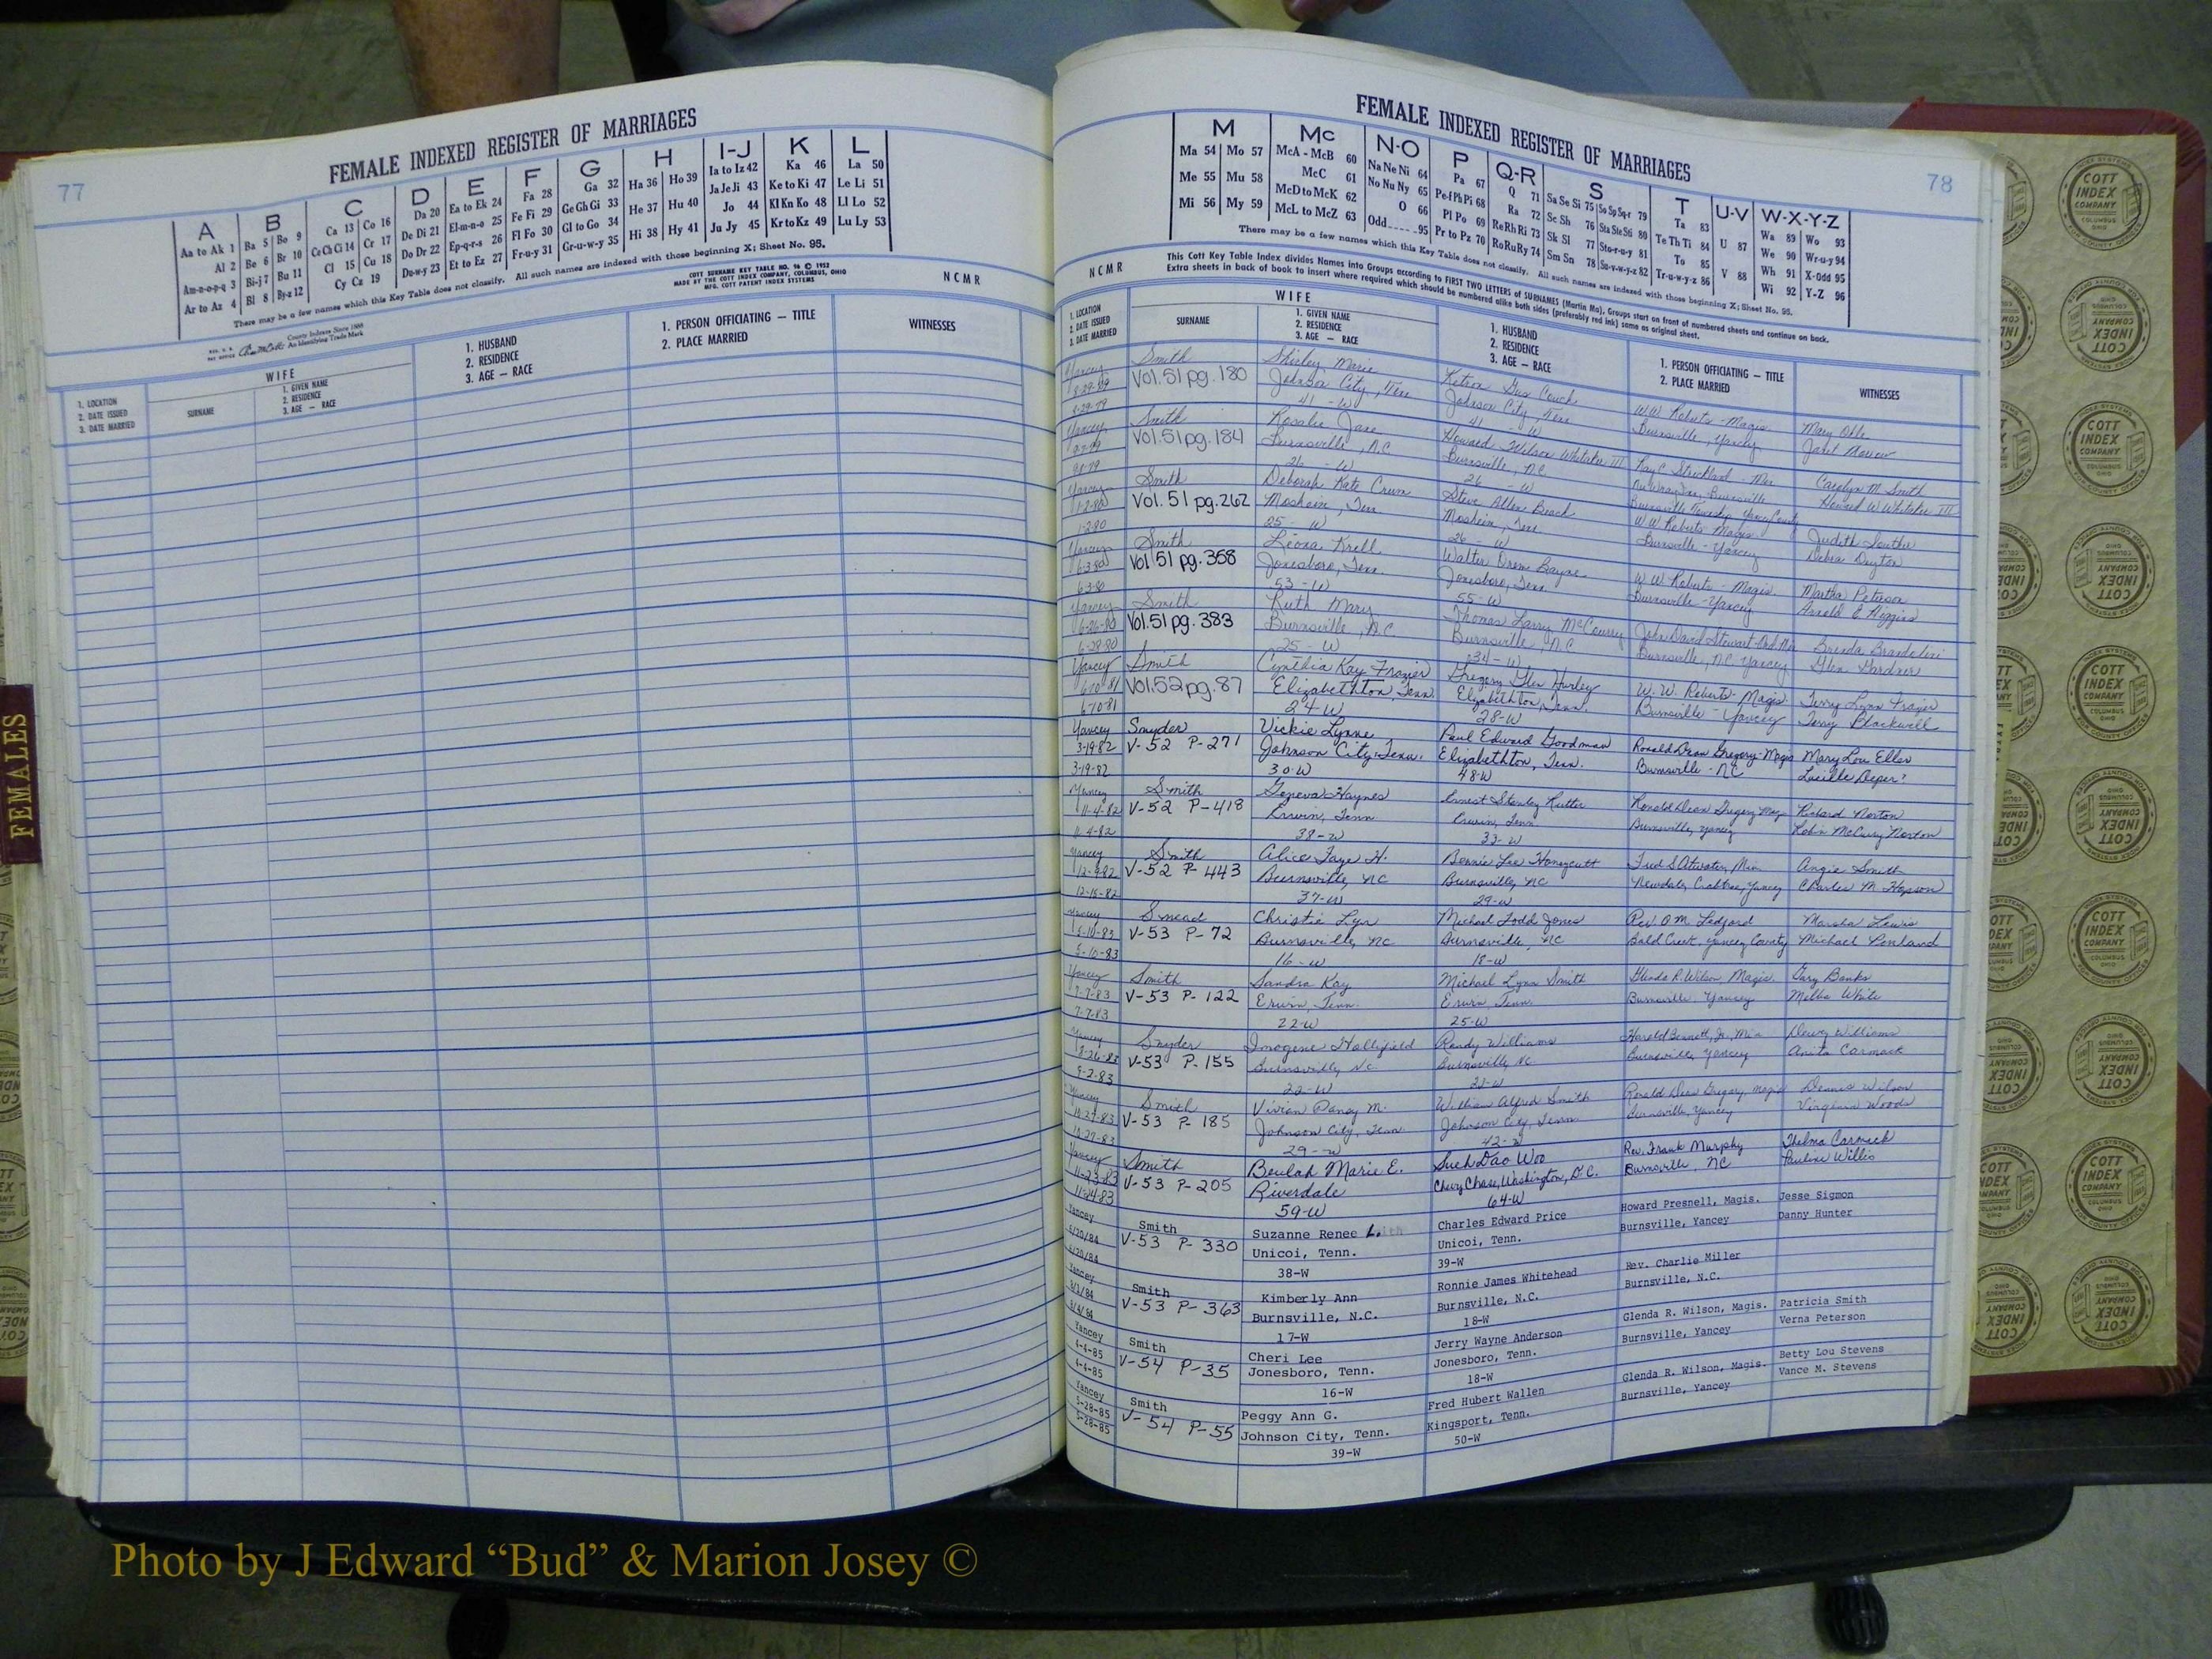 77
FEMALE INDEXED REGISTER OF MARRIAGES
A B C D E F G H I-J K L
Aa to Ak 1
Al 2
Am-n-o-p-q 3
Ar to Az 4
Ba 5 Bo 9
Be 6 Br 10
Bi-j 7 Bu 11
Bl 8 By-z 12
Ca 13 Co 16
Ce Ch Ci 14 Cr 17
Cl 15 Cu 18
Cy Cz 19
Da 20
De Di 21
Do Dr 22
Du-w-y 23
Ea to Ek 24
El-m-n-o 25
Ep-q-r-s 26
Et to Ez 27
Fa 28
Fe Fi 29
Fl Fo 30
Fr-u-y 31
Ga 32
Ge Gh Gi 33
Gl to Go 34
Gr-u-w-y 35
Ha 36 Ho 39
He 37 Hu 40
Hi 38 Hy 41
Ia to Iz 42
Ja Je Ji 43
Jo 44
Ju Jy 45
Ka 46
Ke to Ki 47
Kl Kn Ko 48
Kr to Kz 49
La 50
Le Li 51
Ll Lo 52
Lu Ly 53
There may be a few names which this Key Table does not classify. All such names are indexed with those beginning X; Sheet No. 95.
COTT SURNAME KEY TABLE NO. 96 © 1952
MADE BY THE COTT INDEX COMPANY, COLUMBUS, OHIO
MFG. COTT PATENT INDEX SYSTEMS
County Indexes Since 1888
An Identifying Trade Mark
NCMR
WIFE
1. LOCATION
2. DATE ISSUED
3. DATE MARRIED
SURNAME
1. GIVEN NAME
2. RESIDENCE
3. AGE — RACE
1. HUSBAND
2. RESIDENCE
3. AGE — RACE
1. PERSON OFFICIATING — TITLE
2. PLACE MARRIED
WITNESSES
FEMALES
FEMALE INDEXED REGISTER OF MARRIAGES
78
M Mc N-O P Q-R S T U-V W-X-Y-Z
Ma 54 Mo 57
Me 55 Mu 58
Mi 56 My 59
McA - McB 60
McC 61
McD to McK 62
McL to McZ 63
Na Ne Ni 64
No Nu Ny 65
O 66
Odd 95
Pa 67
Pe-f Ph Pi 68
Pl Po 69
Pr to Pz 70
Q 71
Ra 72
Re Rh Ri 73
Ro Ru Ry 74
Sa Se Si 75 So Sp Sq-r 79
Sc Sh 76 Sta Ste Sti 80
Sk Sl 77 Sto-r-u-y 81
Sm Sn 78 Su-v-w-y-z 82
Ta 83
Te Th Ti 84
To 85
Tr-u-w-y-z 86
U 87
V 88
Wa 89 Wo 93
We 90 Wr-u-y 94
Wh 91 X-Odd 95
Wi 92 Y-Z 96
There may be a few names which this Key Table does not classify. All such names are indexed with those beginning X; Sheet No. 95.
NCMR
This Cott Key Table Index divides Names into Groups according to FIRST TWO LETTERS of SURNAMES (Martin Ma). Groups start on front of numbered sheets and continue on back.
Extra sheets in back of book to insert where required which should be numbered alike both sides (preferably red ink) same as original sheet.
WIFE
1. LOCATION
2. DATE ISSUED
3. DATE MARRIED
SURNAME
1. GIVEN NAME
2. RESIDENCE
3. AGE — RACE
1. HUSBAND
2. RESIDENCE
3. AGE — RACE
1. PERSON OFFICIATING — TITLE
2. PLACE MARRIED
WITNESSES
Yancey Smith Shirley Marie
8-29-79 Vol.51 pg.180 Johnson City, Tenn Johnson City, Tenn Burnsville, Yancey
8-29-79 41 - W 41 - W
Yancey Smith Rosalie Jane Howard Wilson Whitaker III Carolyn M. Smith
Vol.51 pg.184 Burnsville, N.C. Burnsville, N.C. Howard W. Whitaker III
26 - W 26 - W
Yancey Smith Deborah Kate Crum Steve Allen Beach W.W. Roberts - Magis
1-2-80 Vol. 51 pg.262 Mosheim, Tenn Mosheim, Tenn Burnsville - Yancey
1-2-80 25 - W 26 - W
Yancey Smith Leona Krell W.W. Roberts - Magis Martha Peterson
6-3-80 Vol.51 pg.358 Jonesboro, Tenn. Jonesboro, Tenn. Burnsville - Yancey Arnold E. Higgins
6-3-80 53 - W 55 - W
Yancey Smith Ruth Mary Thomas Larry McCourry
6-26-80 Vol.51 pg.383 Burnsville, N.C. Burnsville, N.C. Burnsville, N.C. Yancey Glen Gardner
6-28-80 25 - W 34 - W
Yancey Smith Cynthia Kay Frazier Gregory Glen Hurley W.W. Roberts - Magis Terry Lynn Frazier
6-10-81 Vol.52 pg.87 Elizabethton, Tenn. Elizabethton, Tenn. Burnsville - Yancey Terry Blackwell
6-10-81 24-W 28-W
Yancey Snyder Vickie Lynne Paul Edward Goodman Ronald Dean Gregory - Magis Mary Lou Eller
3-19-82 V-52 P-271 Johnson City, Tenn. Elizabethton, Tenn. Burnsville - NC
3-19-82 30-W 48-W
Yancey Smith Geneva Haynes Ronald Dean Gregory Mag. Richard Norton
11-4-82 V-52 P-418 Erwin, Tenn Erwin, Tenn Burnsville, Yancey Robin McCurry Norton
11-4-82 38-W 33-W
Yancey Smith Alice Faye H. Bennie Lee Honeycutt Fred S. Atwater, Min Angie Smith
12-9-82 V-52 P-443 Burnsville, NC Burnsville, NC Newdale, Crabtree, Yancey
12-15-82 37-W 29-W
Yancey Smead Christie Lyn Michael Todd Jones Rev. O.M. Ledford Marsha Lewis
5-10-83 V-53 P-72 Burnsville, NC Burnsville, NC Bald Creek, Yancey County Michael Penland
5-10-83 16-W 18-W
Yancey Smith Sandra Kay Michael Lynn Smith Glenda R. Wilson Magis. Gary Banks
7-7-83 V-53 P-122 Erwin, Tenn. Erwin, Tenn. Burnsville, Yancey White
7-7-83 22-W 25-W
Yancey Snyder Imogene Hollifield Randy Williams Harold Bennett, Jr., Min Dewey Williams
8-26-83 V-53 P-155 Burnsville, NC Burnsville, NC Burnsville, Yancey Anita Carmack
9-2-83 22-W
Yancey Smith Vivian Pansy M. William Alfred Smith Ronald Dean Gregory, Magis Dennis Wilson
10-27-83 V-53 P-185 Johnson City, Tenn. Johnson City, Tenn Burnsville, Yancey Virginia Woods
10-27-83 29-W 42-W
Yancey Smith Beulah Marie E. Sueh Dao Woo Rev. Frank Murphy Thelma Carmack
11-23-83 V-53 P-205 Riverdale Chevy Chase, Washington, D.C. Burnsville, NC Pauline Willis
11-24-83 59-W 64-W
Yancey Smith Suzanne Renee L. Charles Edward Price Howard Presnell, Magis. Jesse Sigmon
6/20/84 V-53 P-330 Unicoi, Tenn. Unicoi, Tenn. Burnsville, Yancey Danny Hunter
6/20/84 38-W 39-W
Yancey Smith Kimberly Ann Ronnie James Whitehead Rev. Charlie Miller
8/1/84 V-53 P-363 Burnsville, N.C. Burnsville, N.C. Burnsville, N.C.
8/4/84 17-W 18-W
Yancey Smith Cheri Lee Jerry Wayne Anderson Glenda R. Wilson, Magis. Patricia Smith
4-4-85 V-54 P-35 Jonesboro, Tenn. Jonesboro, Tenn. Burnsville, Yancey Verna Peterson
4-4-85 16-W 18-W
Yancey Smith Peggy Ann G. Fred Hubert Wallen Glenda R. Wilson, Magis. Betty Lou Stevens
5-28-85 V-54 P-55 Johnson City, Tenn. Kingsport, Tenn. Burnsville, Yancey Vance M. Stevens
5-28-85 39-W 50-W
COTT INDEX COMPANY COLUMBUS OHIO
Photo by J Edward “Bud” & Marion Josey ©